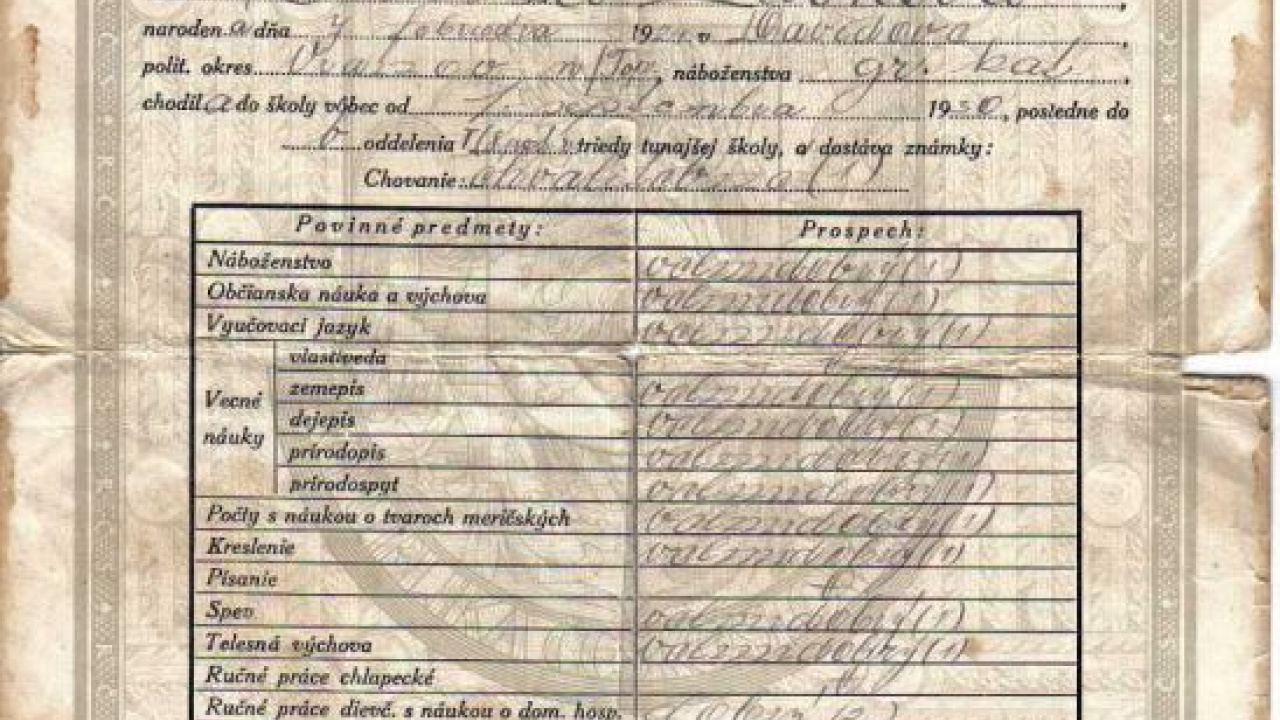 naroden a dňa 7 februára 192 v Davidova
polit. okres Vranov n/Top, náboženstva gr. kat
chodil a do školy vôbec od 1. septembra 1930, posledne do
oddelenia triedy tunajšej školy, a dostáva známky:
Chovanie: chvalitebné (1)
Povinné predmety: Prospech:
Náboženstvo velmi dobrý (1)
Občianska náuka a výchova velmi dobrý (1)
Vyučovací jazyk velmi dobrý (1)
Vecné náuky
vlastiveda
zemepis velmi dobrý (1)
dejepis velmi dobrý (1)
prírodopis velmi dobrý (1)
prírodospyt velmi dobrý (1)
Počty s náukou o tvaroch meričských velmi dobrý (1)
Kreslenie velmi dobrý (1)
Písanie
Spev velmi dobrý (1)
Telesná výchova velmi dobrý (1)
Ručné práce chlapecké
Ručné práce dievč. s náukou o dom. hosp. dobrý (2)